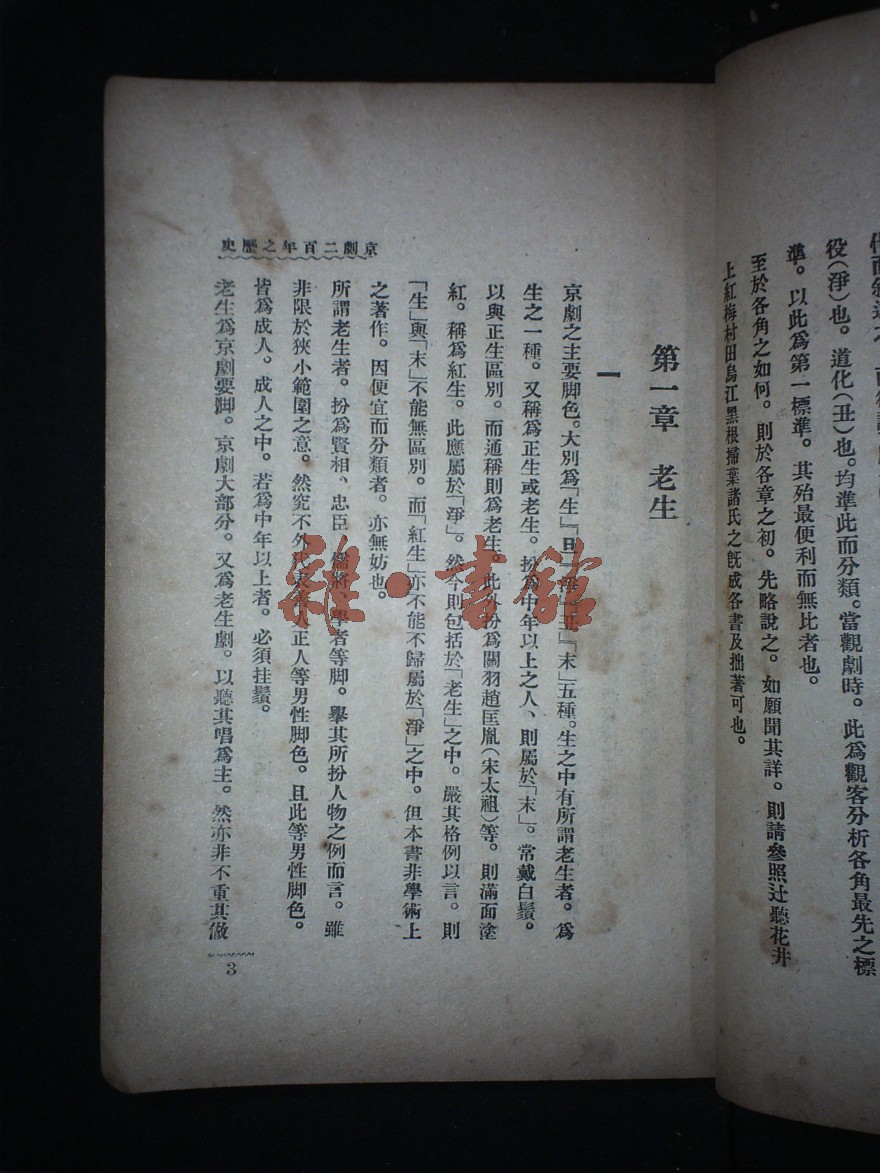 役（淨）也。道化（丑）也。均準此而分類。當觀劇時。此爲觀客分析各角最先之標
準。以此爲第一標準。其殆最便利而無比者也。
至於各角之如何。則於各章之初。先略說之。如願聞其詳。則請參照辻聽花井
上紅梅村田烏江黑根掃葉諸氏之旣成各書及拙著可也。
第一章 老生
一
京劇之主要脚色。大別爲「生」「旦」「淨」「丑」「末」五種。生之中有所謂老生者。爲
生之一種。又稱爲正生或老生。扮爲中年以上之人、則屬於「末」。常戴白鬚。
以與正生區別。而通稱則爲老生。此外扮爲關羽趙匡胤（宋太祖）等。則滿面塗
紅。稱爲紅生。此應屬於「淨」。然今則包括於「老生」之中。嚴其格例以言。則
「生」與「末」不能無區別。而「紅生」亦不能不歸屬於「淨」之中。但本書非學術上
之著作。因便宜而分類者。亦無妨也。
所謂老生者。扮爲賢相、忠臣、儒將、學者等脚。舉其所扮人物之例而言。雖
非限於狹小範圍之意。然究不外代表善人正人等男性脚色。且此等男性脚色。
皆爲成人。成人之中。若爲中年以上者。必須挂鬚。
老生爲京劇要脚。京劇大部分。又爲老生劇。以聽其唱爲主。然亦非不重其做
京劇二百年之歷史
3
雜·書館